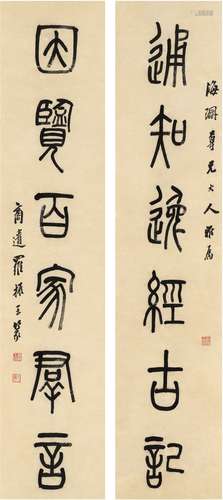 通知逸經古記
海尊兄大人雅屬
因覽百家羣言
商遺羅振玉篆